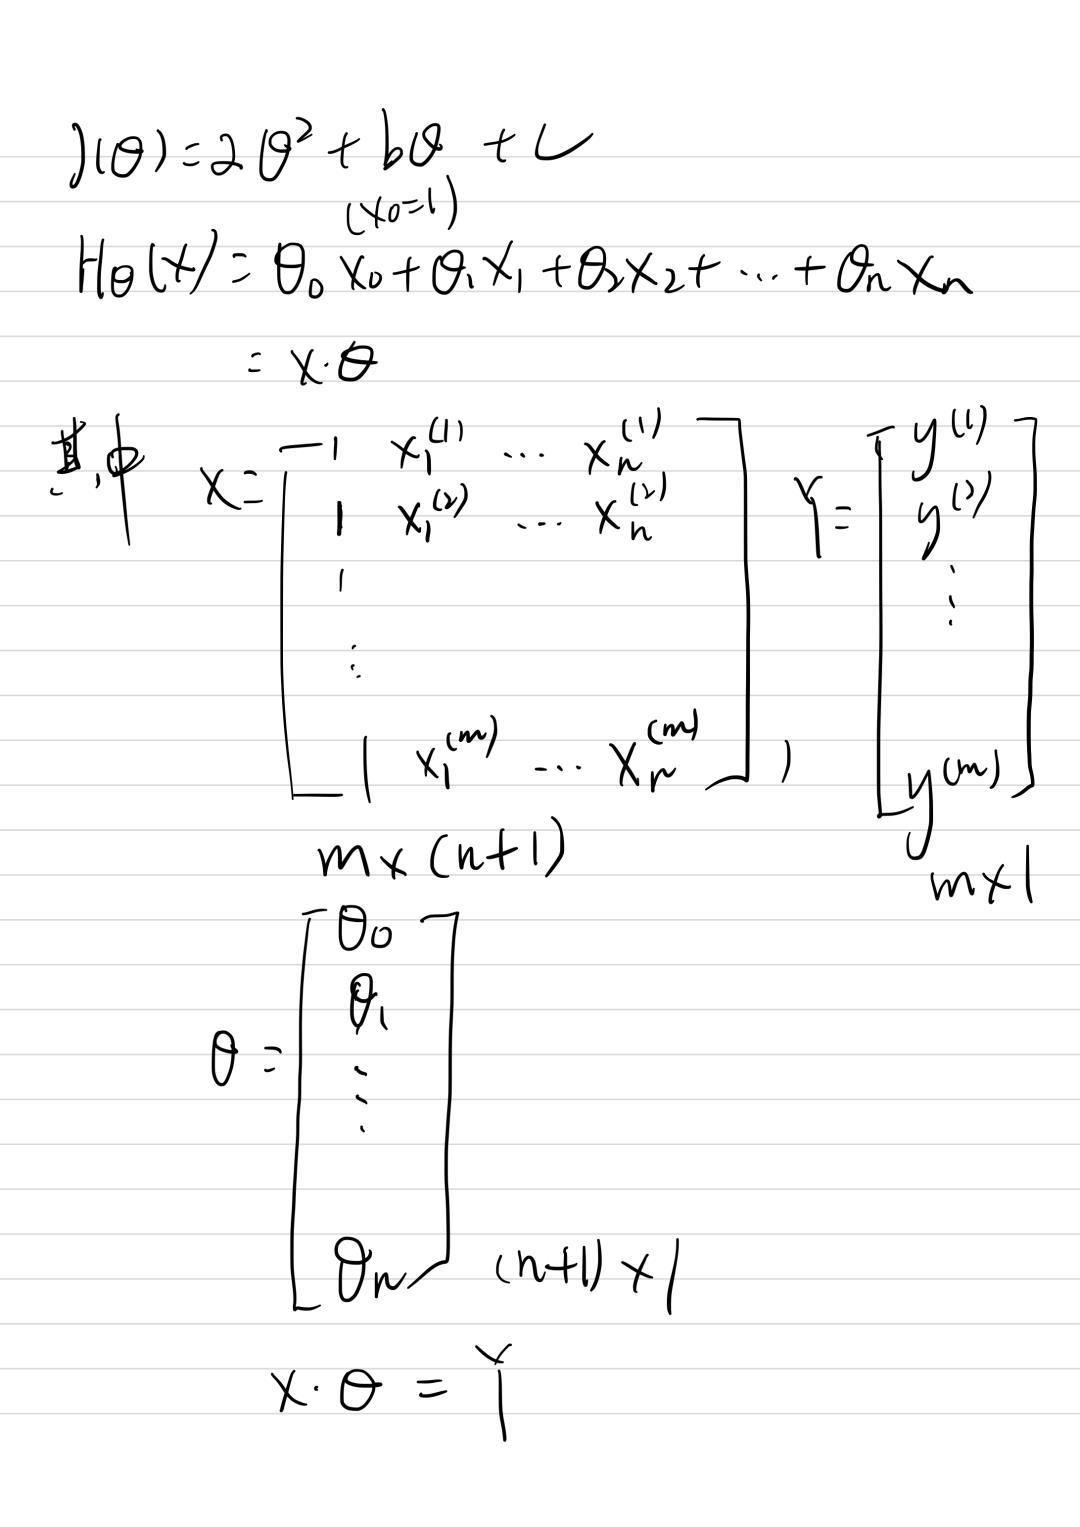 J(θ)=2θ²+bθ+c
(x₀=1)
Hθ(x)=θ₀x₀+θ₁x₁+θ₂x₂+…+θₙxₙ
=x·θ
其中
X=[1 x₁⁽¹⁾ … xₙ⁽¹⁾
1 x₁⁽²⁾ … xₙ⁽²⁾
1
⋮
1 x₁⁽ᵐ⁾ … xₙ⁽ᵐ⁾],
m×(n+1)
Y=[y⁽¹⁾
y⁽²⁾
⋮
y⁽ᵐ⁾]
m×1
θ=[θ₀
θ₁
⋮
θₙ] (n+1)×1
x·θ=Y